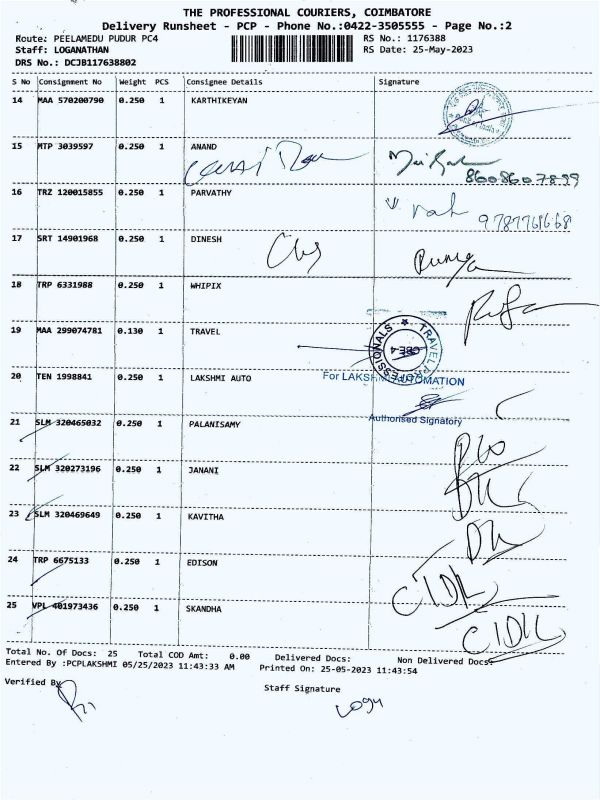 THE PROFESSIONAL COURIERS, COIMBATORE
Delivery Runsheet - PCP - Phone No.:0422-3505555 - Page No.:2
Route: PEELAMEDU PUDUR PC4 RS No.: 1176388
Staff: LOGANATHAN RS Date: 25-May-2023
DRS No.: DCJB117638802
S No Consignment No Weight PCS Consignee Details Signature
14 MAA 570200790 0.250 1 KARTHIKEYAN
15 MTP 3039597 0.250 1 ANAND
8608607899
16 TRZ 120015855 0.250 1 PARVATHY
17 SRT 14901968 0.250 1 DINESH
18 TRP 6331988 0.250 1 WHIPIX
19 MAA 299074781 0.130 1 TRAVEL
TRAVEL PROFESSIONALS
CBE-4
20 TEN 1998841 0.250 1 LAKSHMI AUTO
For LAKSHMI AUTOMATION
Authorised Signatory
21 SLM 320465032 0.250 1 PALANISAMY
22 SLM 320273196 0.250 1 JANANI
23 SLM 320469649 0.250 1 KAVITHA
24 TRP 6675133 0.250 1 EDISON
25 VPL 401973436 0.250 1 SKANDHA
Total No. Of Docs: 25 Total COD Amt: 0.00 Delivered Docs: Non Delivered Docs:
Entered By :PCPLAKSHMI 05/25/2023 11:43:33 AM Printed On: 25-05-2023 11:43:54
Verified By
Staff Signature
Logu